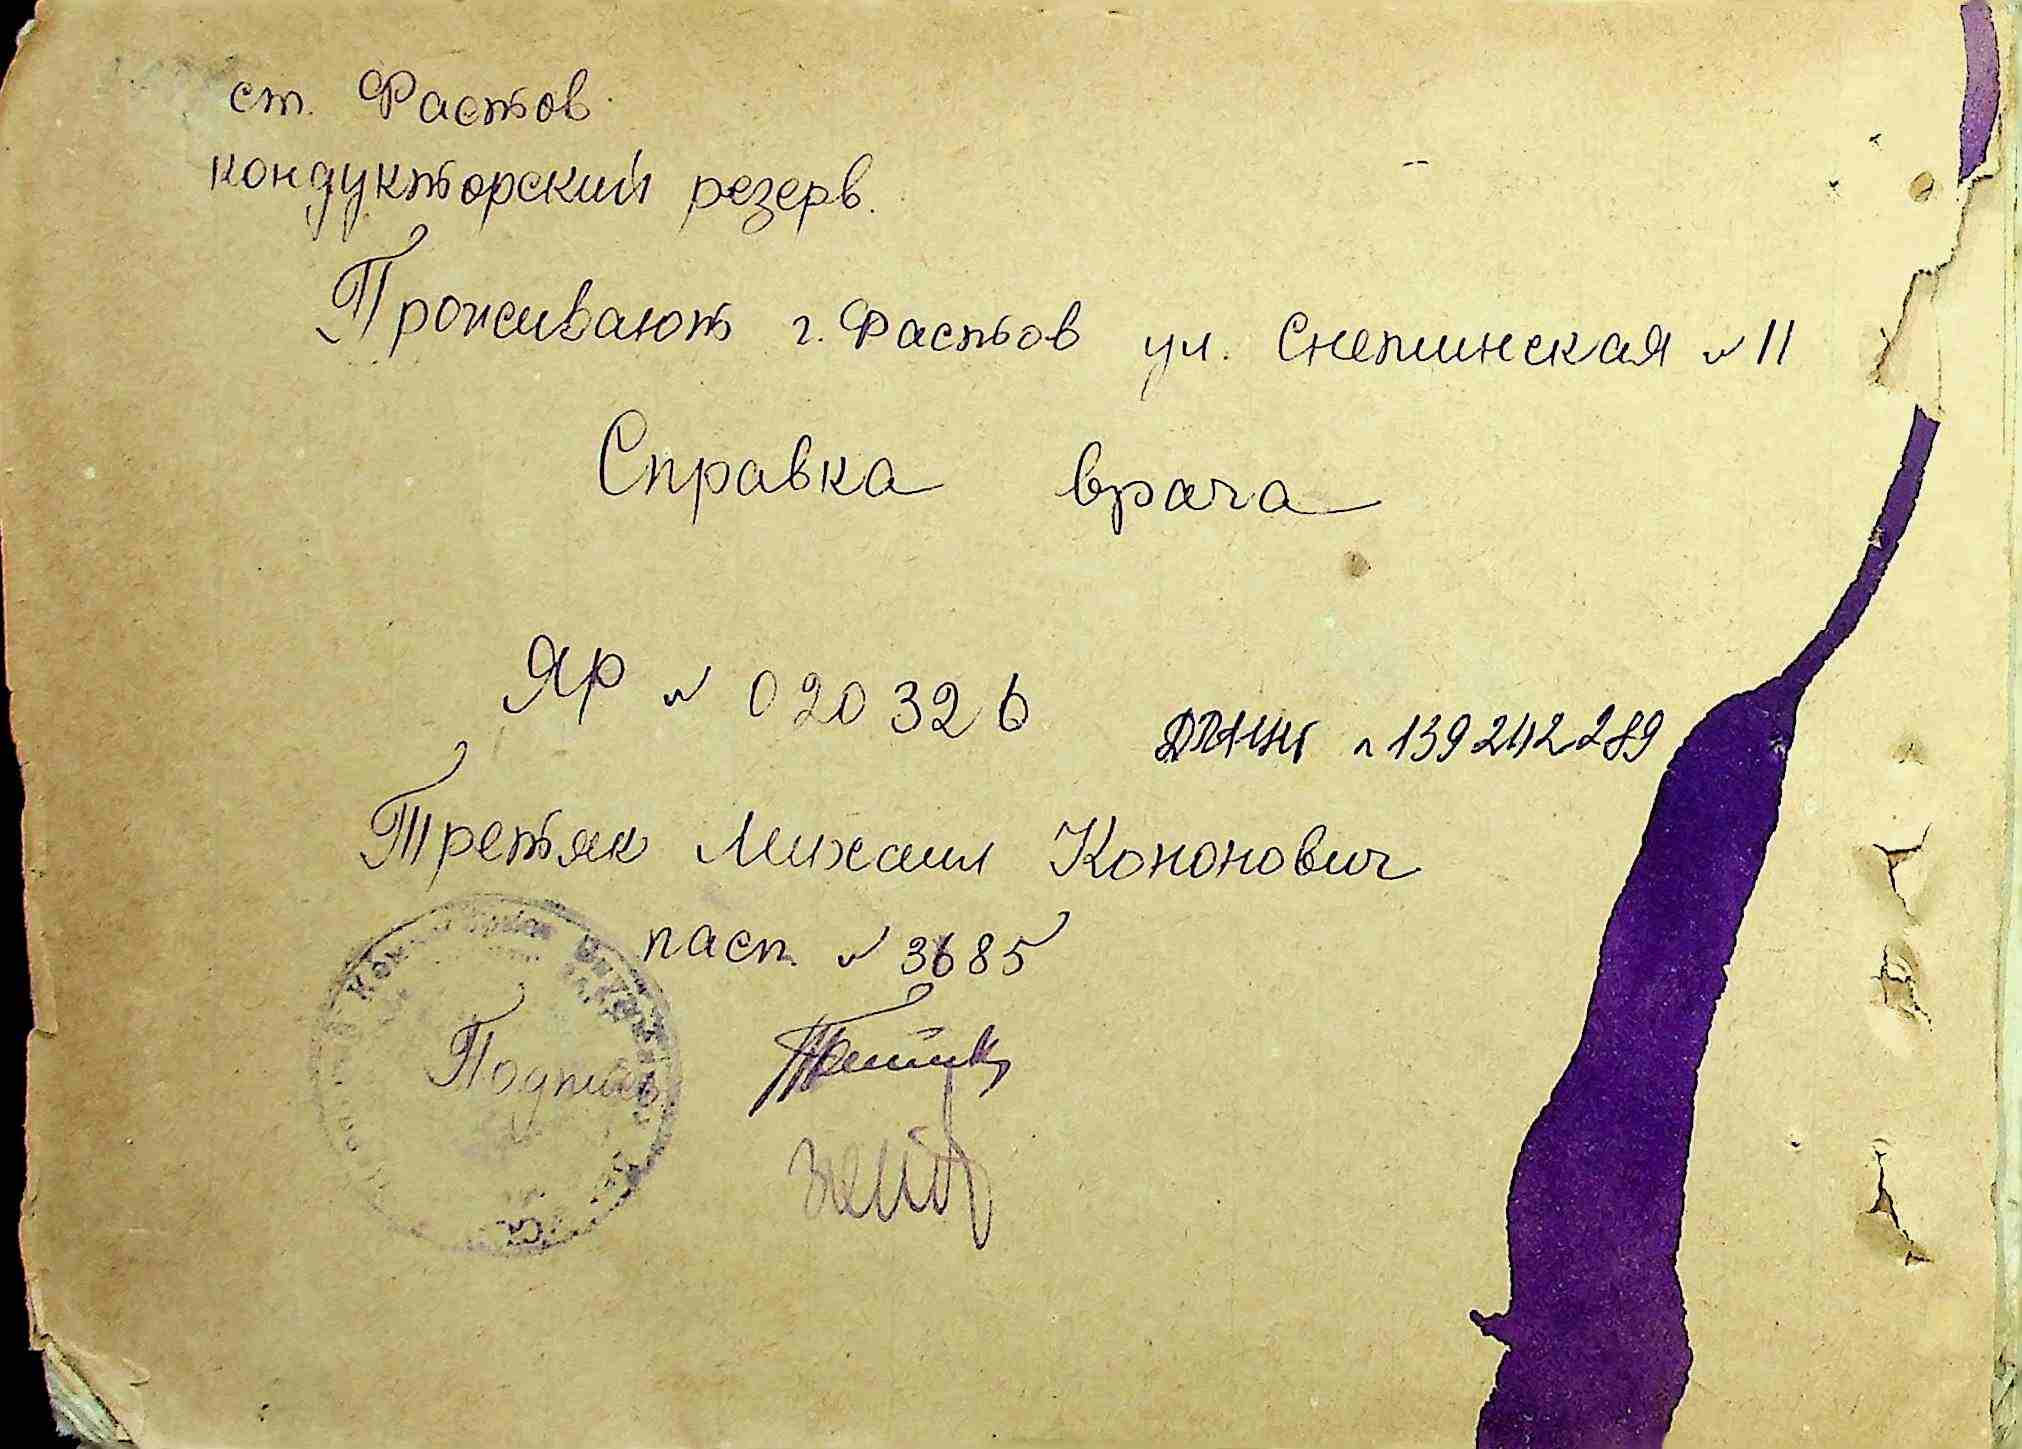 ст. Фастов
кондукторский резерв.
Проживают г. Фастов ул. Снетинская № 11
Справка врача
Яр № 020326
№ 139242289
Третяк Михаил Кононович
пасп. № 3685
Подпись